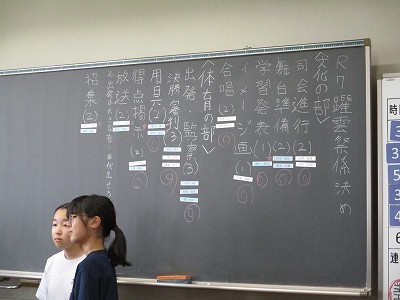 R7躍雲祭係決め
〈文化の部〉
司会進行(2)
舞台準備(2)
学習発表(1)
イメージ画(1)
合唱(2)
〈体育の部〉
出発・監察(3)
決勝審判(3)
用具(2)
得点掲示(2)
放送(2)
招集(2)
時間
3
5
3
3
6
連